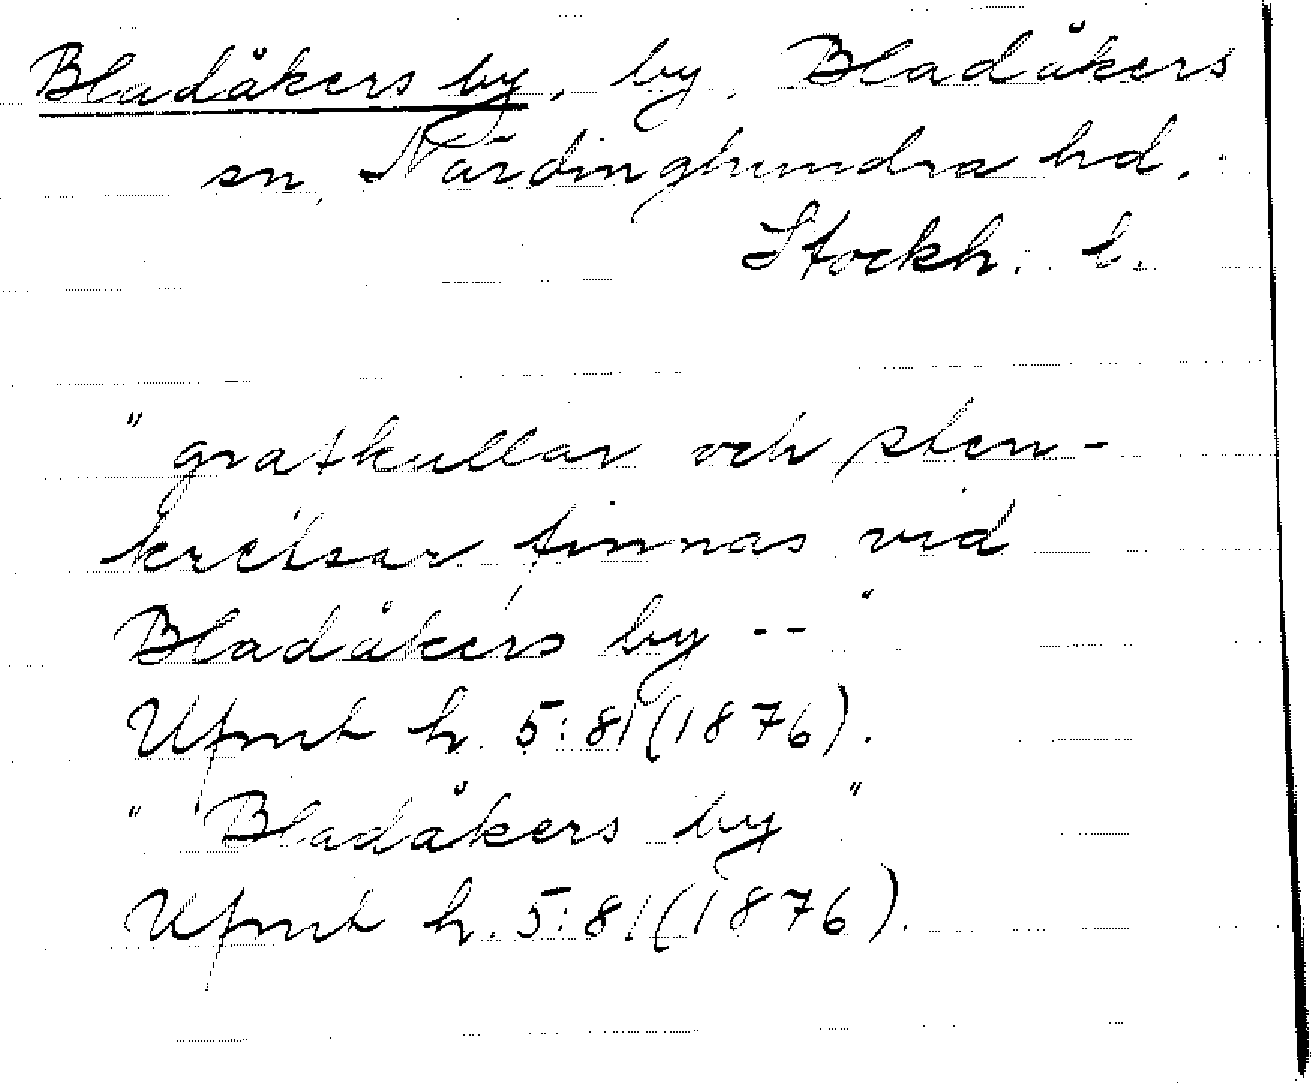 Bladåkers by, by, Bladåkers
sn, Närdinghundra hd.
Stockh. l.
"grafkullar och sten-
kretsar finnas vid
Bladåkers by --"
Ufmt h. 5:81(1876).
"Bladåkers by"
Ufmt h. 5:81(1876).